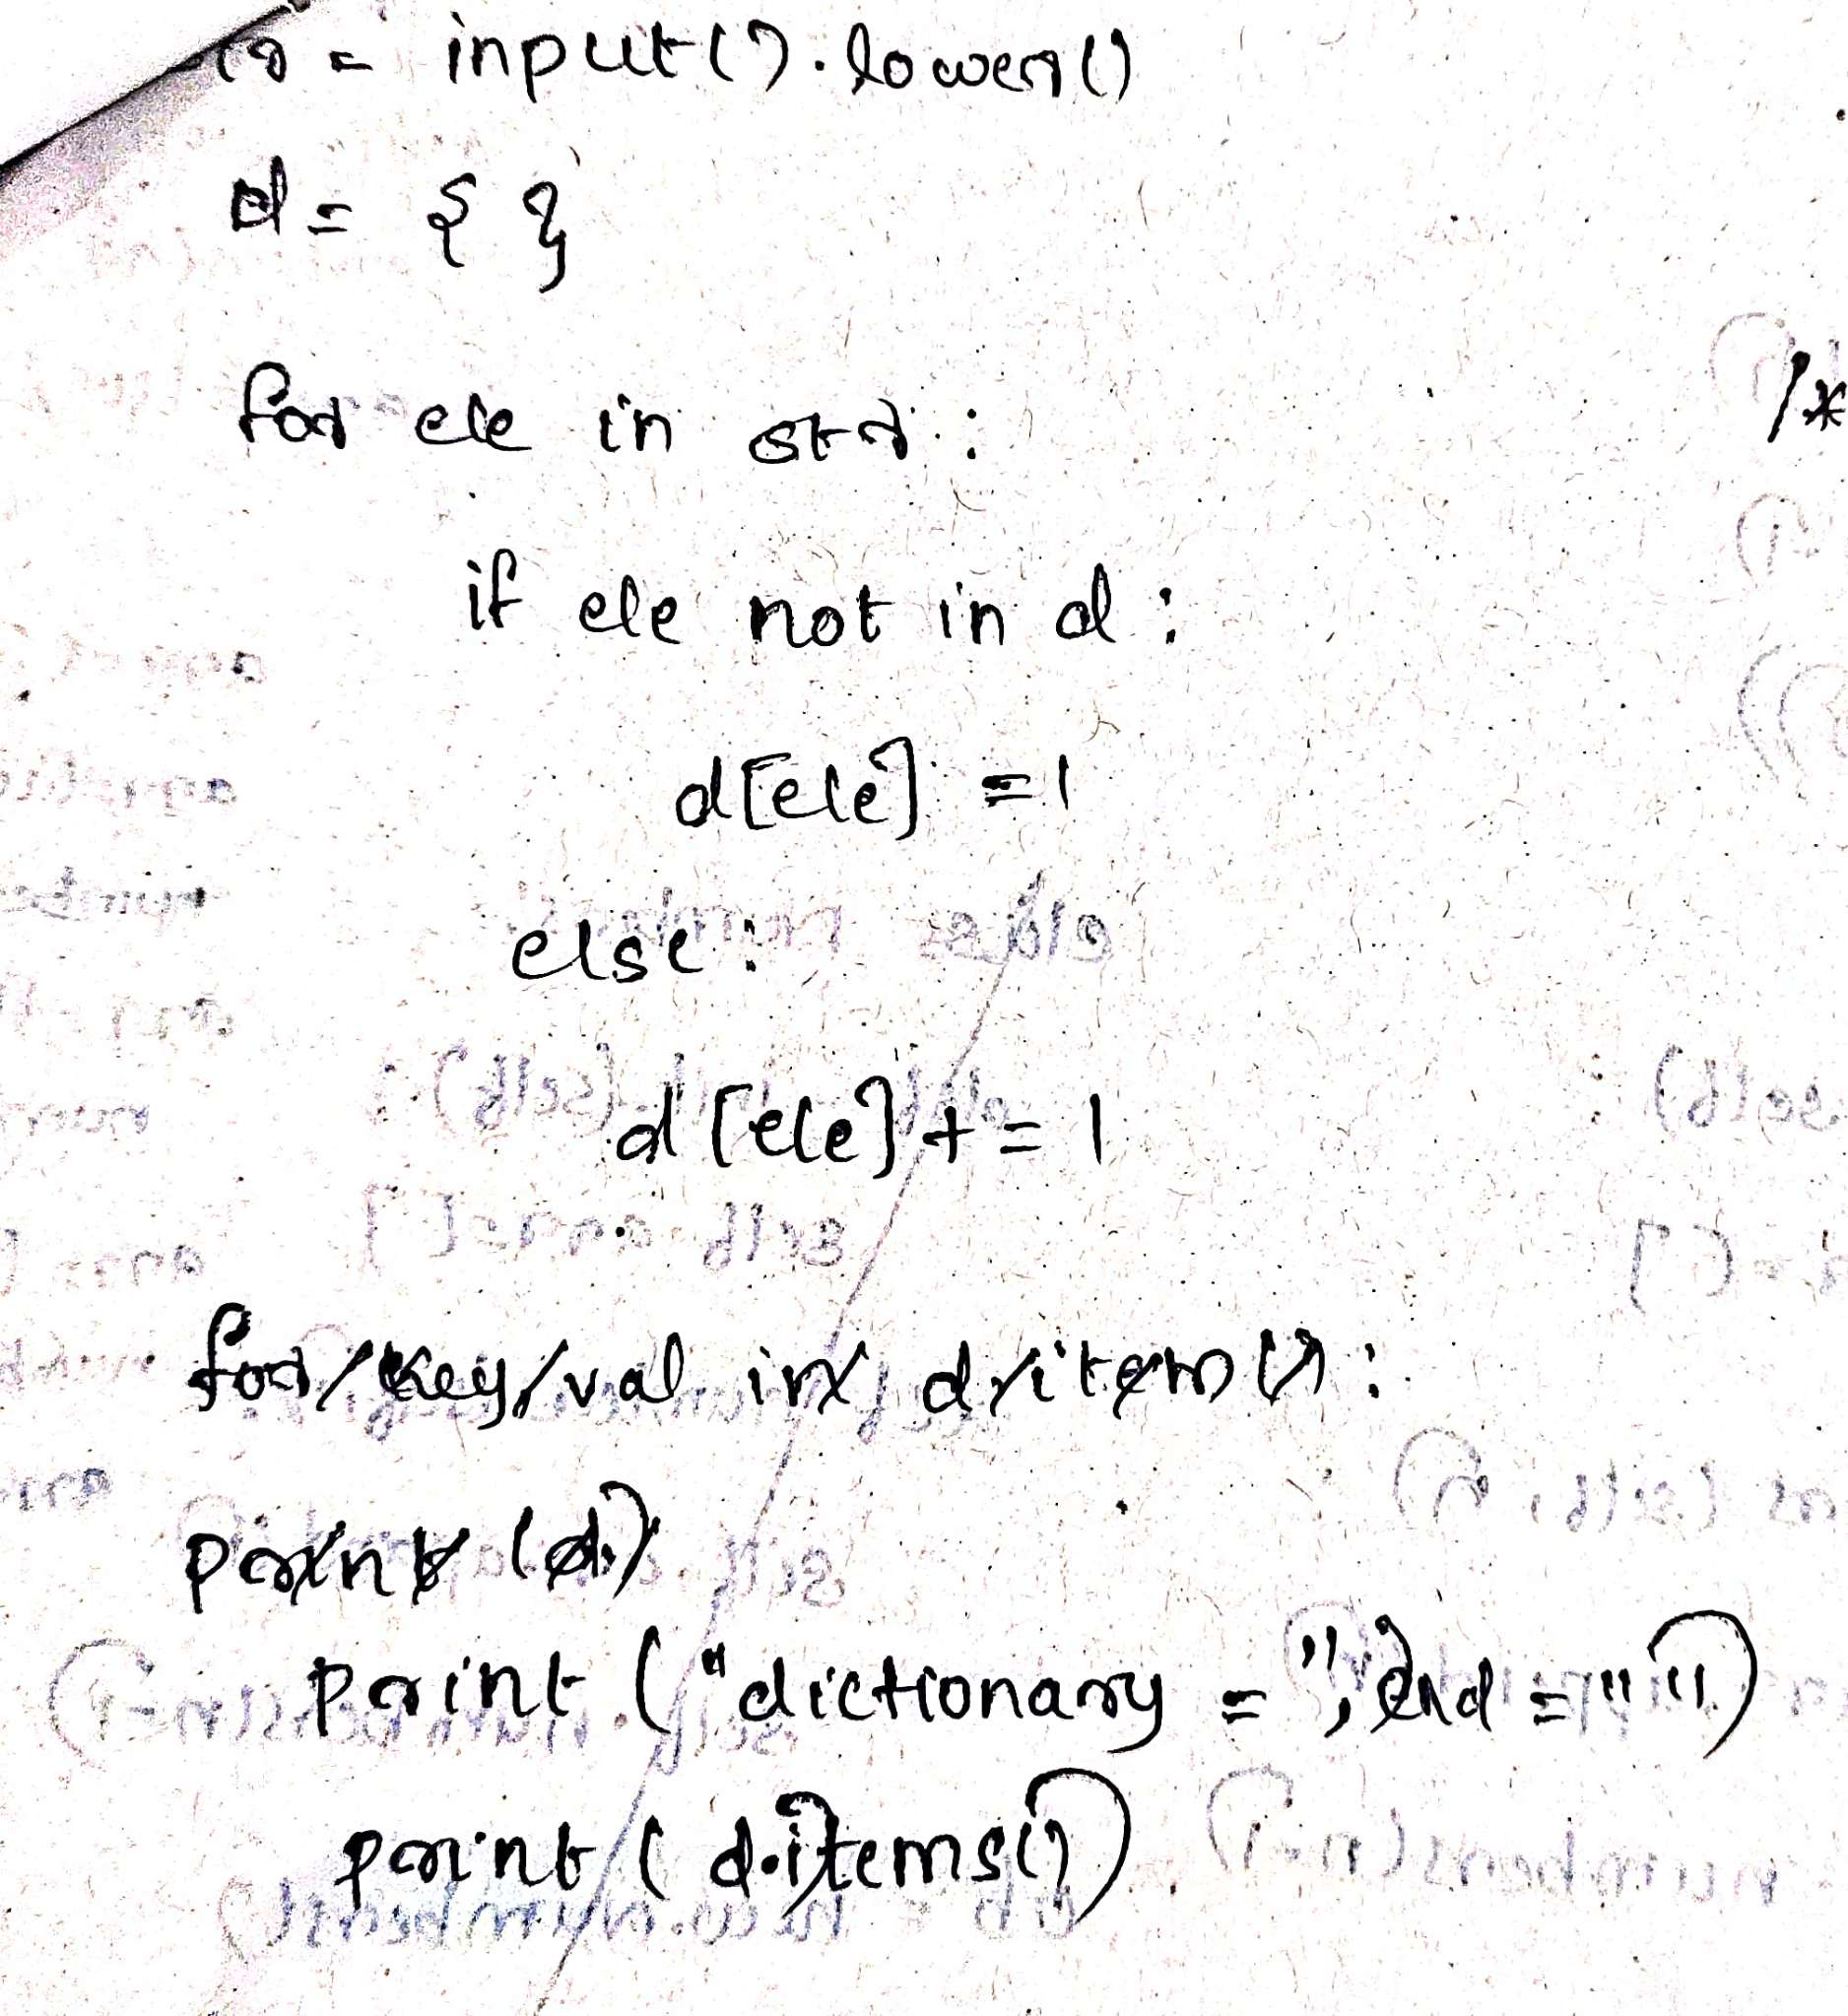 = input().lower()
d = { }
for ele in str :
/*
if ele not in d :
d[ele] = 1
else :
d[ele] += 1
for key, val in d.item():
print (d)
print ("dictionary = ", end = "")
print (d.items())